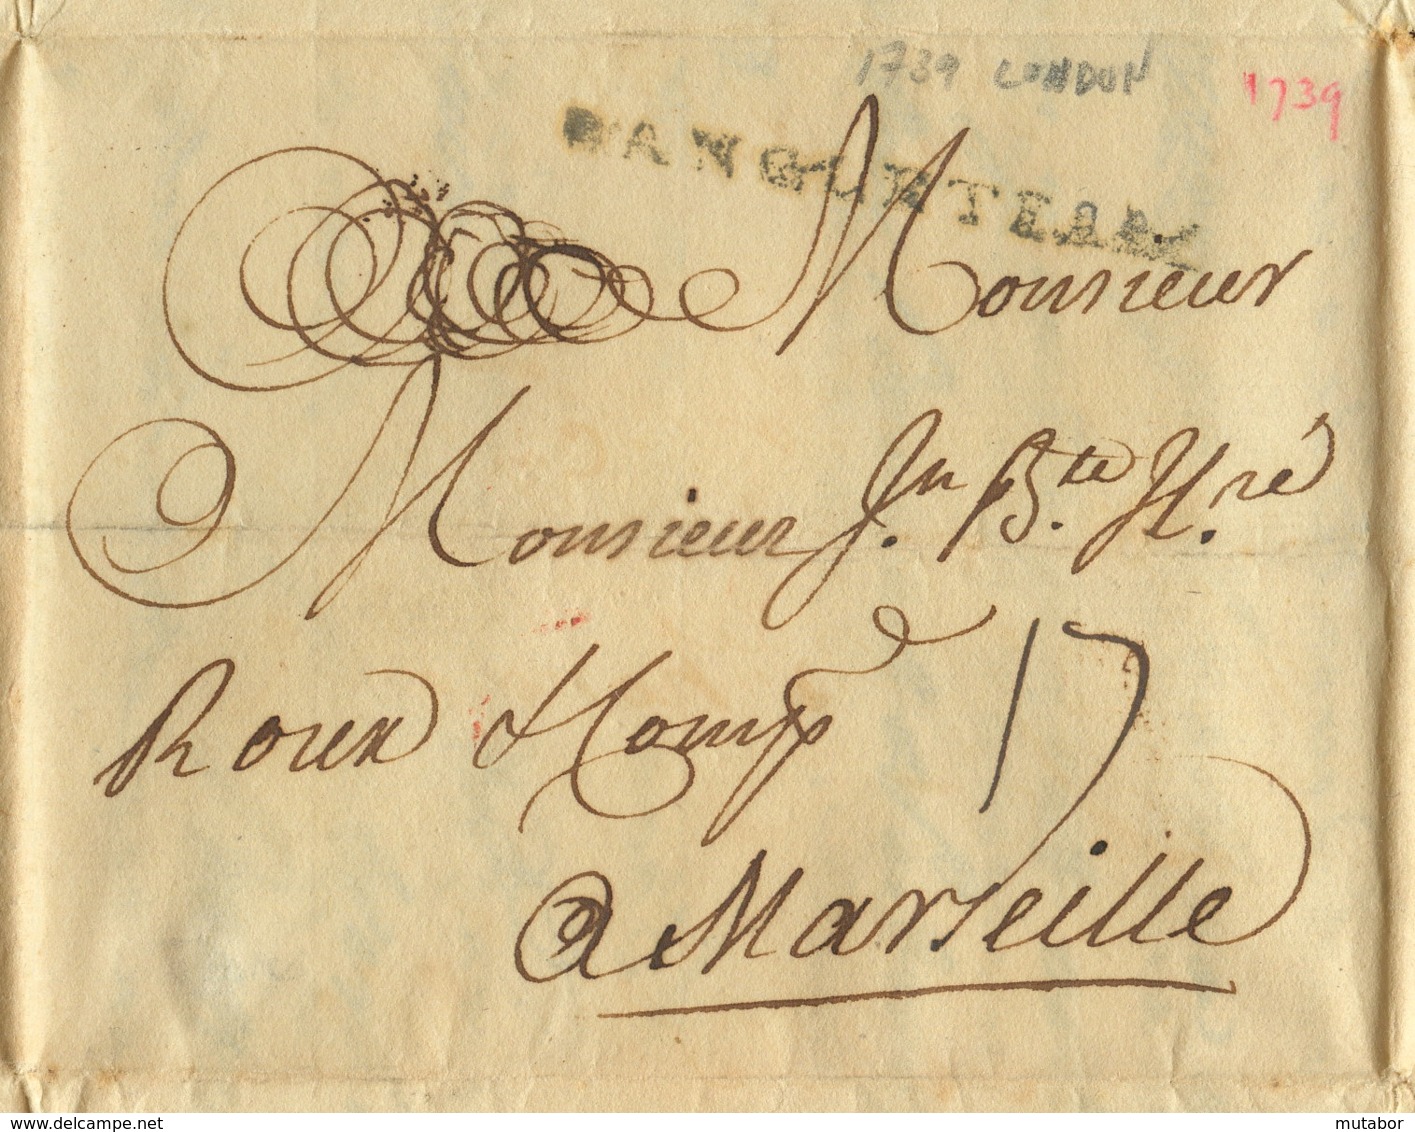 1739 LONDON
1739
D'ANGLETERRE
Monsieur
Monsieur Jn. Bte. Hré.
Roux & Compe.
17
a Marseille
www.delcampe.net
mutabor